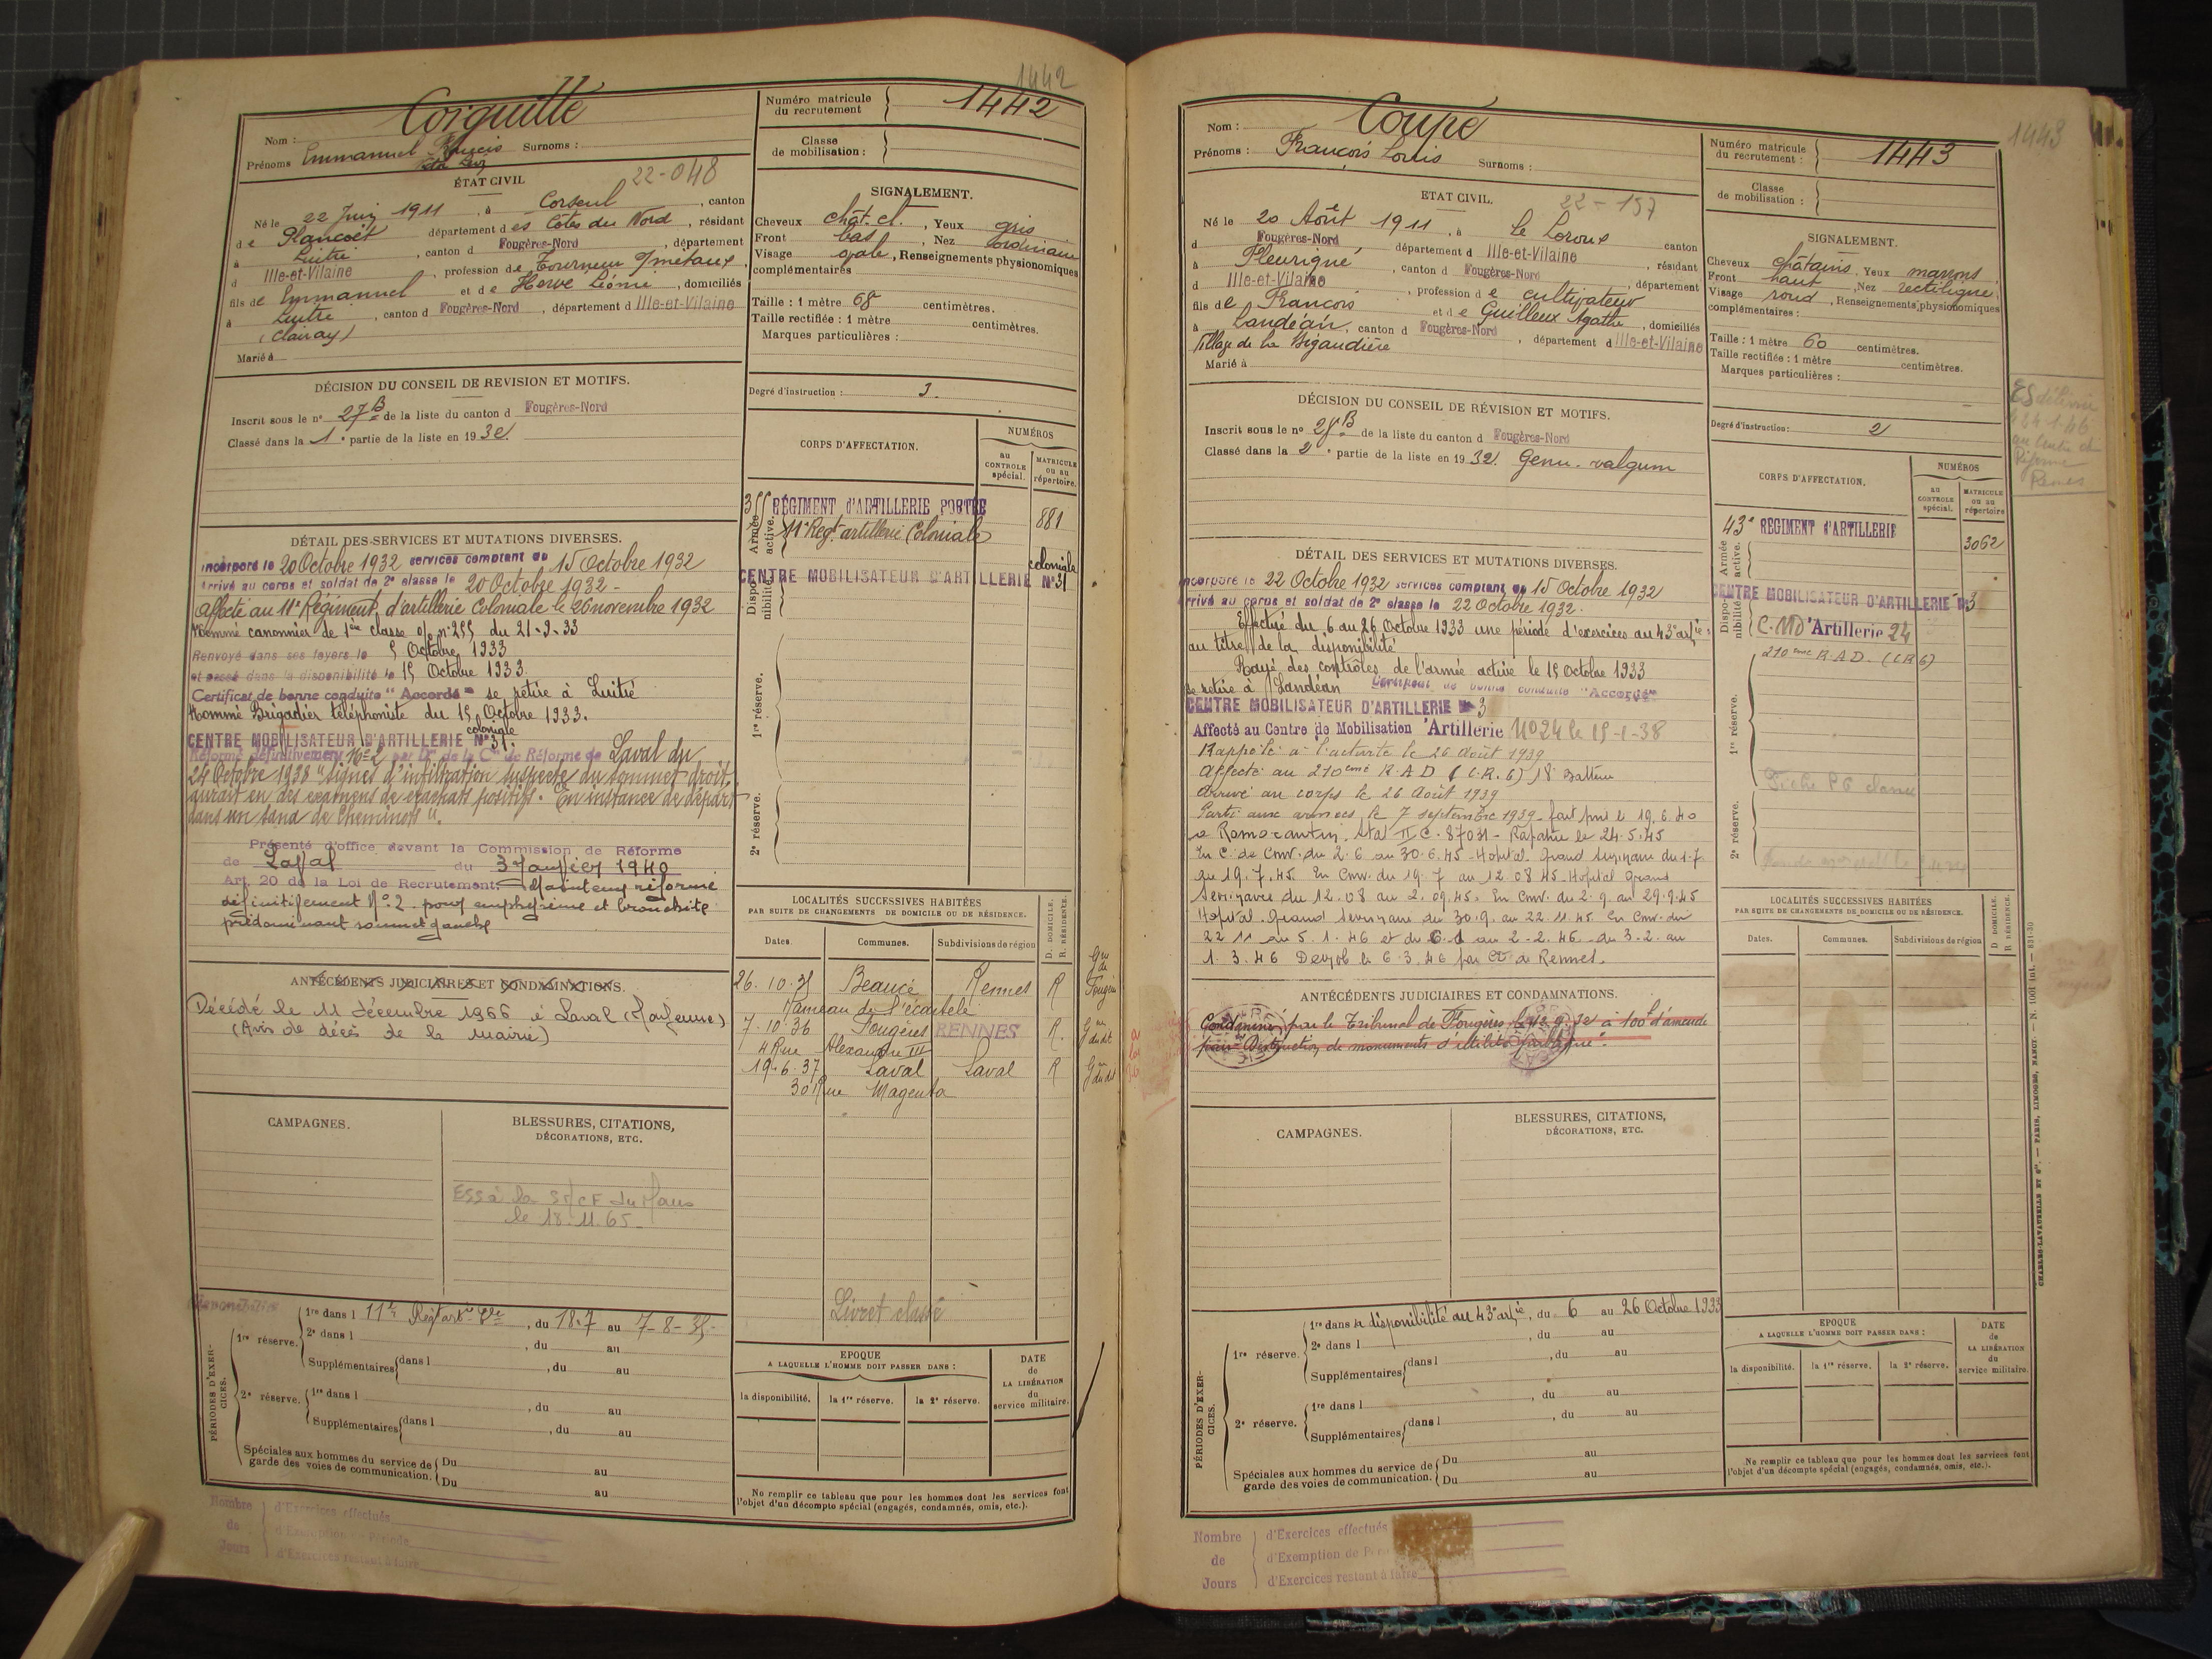 1442
Nom : Corguillé
Prénoms Emmanuel François Surnoms :
Numéro matricule du recrutement 1442
Classe de mobilisation :
ÉTAT CIVIL 22-048
Né le 22 Juin 1911, à Corseul, canton
de Plancoët département des Côtes du Nord, résidant
à Luitré, canton d Fougères-Nord, département
d Ille-et-Vilaine, profession de Tourneur s/métaux,
fils de Emmanuel et de Hervé Léonie, domiciliés
à Luitré, canton d Fougères-Nord, département d Ille-et-Vilaine
(Clairay)
Marié à
SIGNALEMENT.
Cheveux chât. cl., Yeux gris
Front bas, Nez ordinaire
Visage ovale, Renseignements physionomiques
complémentaires
Taille : 1 mètre 68 centimètres.
Taille rectifiée : 1 mètre centimètres.
Marques particulières :
Degré d'instruction : 3.
DÉCISION DU CONSEIL DE REVISION ET MOTIFS.
Inscrit sous le n° 27 B de la liste du canton d Fougères-Nord
Classé dans la 1e partie de la liste en 1932.
CORPS D'AFFECTATION.
NUMÉROS
au CONTROLE spécial.
MATRICULE ou au répertoire.
Armée active.
355 RÉGIMENT d'ARTILLERIE PORTÉE
11e Regt artillerie Coloniale
881
Disponibilité
coloniale
CENTRE MOBILISATEUR D'ARTILLERIE N°31
1re réserve.
2e réserve.
DÉTAIL DES SERVICES ET MUTATIONS DIVERSES.
Incorporé le 20 Octobre 1932 services comptant du 15 Octobre 1932
Arrivé au corps et soldat de 2e classe le 20 Octobre 1932 -
Affecté au 11e Régiment d'artillerie Coloniale le 26 novembre 1932
Nommé canonnier de 1ère classe o/ n°255 du 21-9-33
Renvoyé dans ses foyers le 5 Octobre 1933
et passé dans la disponibilité le 15 Octobre 1933.
Certificat de bonne conduite "Accordé" se retire à Luitré
Nommé Brigadier téléphoniste du 15 Octobre 1933.
coloniale
CENTRE MOBILISATEUR D'ARTILLERIE N°31.
Réformé définitivement N°2 par Don de la Con de Réforme de Laval du
24 Octobre 1938 "signes d'infiltration suspecte du sommet droit.
aurait eu des examens de crachats positifs. En instance de départ
dans un sana de Cheminots".
Présenté d'office devant la Commission de Réforme
de Laval du 3 Janvier 1940
Art. 20 de la Loi de Recrutement. Maintenu réformé
définitivement N°2 pour emphysème et bronchite
prédominant sommet gauche
ANTÉCÉDENTS JUDICIAIRES ET CONDAMNATIONS.
Décédé le 11 décembre 1966 à Laval (Mayenne)
(Avis de décès de la mairie)
LOCALITÉS SUCCESSIVES HABITÉES
PAR SUITE DE CHANGEMENTS DE DOMICILE OU DE RÉSIDENCE.
D. DOMICILE.
R. RÉSIDENCE.
Dates. Communes. Subdivisions de région
26.10.35 Beaucé Rennes R
Hameau de l'écartelé
7-10-36 Fougères RENNES R.
4 Rue Alexandre III
19-6-37 Laval Laval R
30 Rue Magenta
Livret classé
CAMPAGNES.
BLESSURES, CITATIONS, DÉCORATIONS, ETC.
ESS à la SNCF du Mans
le 18.11.65
Disponibilité
PÉRIODES D'EXERCICES.
1re réserve. 1re dans l 11e Régt art. Cle, du 18.7 au 7-8-35.
2e dans l , du au
Supplémentaires dans l , du au
2e réserve. 1re dans l , du au
Supplémentaires dans l , du au
Spéciales aux hommes du service de garde des voies de communication. Du au
Du au
EPOQUE
A LAQUELLE L'HOMME DOIT PASSER DANS :
la disponibilité. la 1re réserve. la 2e réserve.
DATE de LA LIBÉRATION du service militaire.
Ne remplir ce tableau que pour les hommes dont les services font
l'objet d'un décompte spécial (engagés, condamnés, omis, etc.).
Nombre de Jours
d'Exercices effectués
d'Exemption de Période
d'Exercices restant à faire
1443
Nom : Coupé
Prénoms : François Louis Surnoms :
Numéro matricule du recrutement : 1443
Classe de mobilisation :
ETAT CIVIL. 22-157
Né le 20 Août 1911, à Le Loroux canton
d Fougères-Nord département d Ille-et-Vilaine, résidant
à Fleurigné, canton d Fougères-Nord, département
d Ille-et-Vilaine, profession de cultivateur
fils de François et de Guilleux Agathe, domiciliés
à Landéan, canton d Fougères-Nord, département d Ille-et-Vilaine
Village de la Bigaudière
Marié à
SIGNALEMENT.
Cheveux châtains, Yeux marrons
Front haut, Nez rectiligne
Visage rond, Renseignements physionomiques
complémentaires :
Taille : 1 mètre 60 centimètres.
Taille rectifiée : 1 mètre centimètres.
Marques particulières :
Degré d'instruction : 2
DÉCISION DU CONSEIL DE RÉVISION ET MOTIFS.
Inscrit sous le n° 28 B de la liste du canton d Fougères-Nord
Classé dans la 2e partie de la liste en 1932. Genu-valgum
ES délivré
le 24-1-46
au Centre de
Réforme
Rennes
CORPS D'AFFECTATION.
NUMÉROS
au CONTROLE spécial.
MATRICULE ou au répertoire
Armée active.
43e REGIMENT d'ARTILLERIE 3062
Disponibilité
CENTRE MOBILISATEUR D'ARTILLERIE N°3
C.MD'Artillerie 24
210ème R.A.D. (CR6)
1re réserve.
Fiche PG classée
2e réserve.
DÉTAIL DES SERVICES ET MUTATIONS DIVERSES.
Incorporé le 22 Octobre 1932 services comptant du 15 Octobre 1932
Arrivé au corps et soldat de 2e classe le 22 Octobre 1932.
Effectué du 6 au 26 Octobre 1933 une période d'exercices au 43e artie
au titre de la disponibilité
Rayé des contrôles de l'armée active le 15 Octobre 1933
se retire à Landéan Certificat de bonne conduite "Accordé"
CENTRE MOBILISATEUR D'ARTILLERIE N°3
Affecté au Centre de Mobilisation 'Artillerie N°24 le 15-1-38
Rappelé à l'activité le 26 Août 1939
Affecté au 210ème R.A.D (C.R.6) 18e Batterie
Arrivé au corps le 26 Août 1939
Parti aux armées le 7 septembre 1939 - fait pris le 19.6.40
à Romorantin. Stal II C. 87031 - Rapatrié le 24.5.45
En C. de Conv. du 2.6 au 30.6.45 - Hôpital Grand Séminaire du 1.7
au 19.7.45. En Conv. du 19.7 au 12.08.45 - Hôpital Grand
Séminaire du 12.08 au 2.09.45. En Conv. du 2.9 au 29.9.45
Hôpital Grand Séminaire du 30.9 au 22.11.45 En Conv. du
22.11 au 5.1.46 et du 6.1 au 2.2.46 - du 3.2. au
1.3.46 Démob le 6.3.46 par CD à Rennes.
ANTÉCÉDENTS JUDICIAIRES ET CONDAMNATIONS.
Condamné par le Tribunal de Fougères le 12.9.32 à 100f d'amende
pour "Destruction de monuments d'utilité publique".
LOCALITÉS SUCCESSIVES HABITÉES
PAR SUITE DE CHANGEMENTS DE DOMICILE OU DE RÉSIDENCE.
D DOMICILE.
R RÉSIDENCE.
Dates. Communes. Subdivisions de région
CAMPAGNES.
BLESSURES, CITATIONS, DÉCORATIONS, ETC.
PÉRIODES D'EXERCICES.
1re réserve. 1re dans la disponibilité au 43e artie, du 6 au 26 Octobre 1933
2e dans l , du au
Supplémentaires dans l , du au
2e réserve. 1re dans l , du au
Supplémentaires dans l , du au
Spéciales aux hommes du service de garde des voies de communication. Du au
Du au
EPOQUE
A LAQUELLE L'HOMME DOIT PASSER DANS :
la disponibilité. la 1re réserve. la 2e réserve.
DATE de LA LIBÉRATION du service militaire.
Ne remplir ce tableau que pour les hommes dont les services font
l'objet d'un décompte spécial (engagés, condamnés, omis, etc.).
Nombre de Jours
d'Exercices effectués
d'Exemption de
d'Exercices restant à faire
CHARLES-LAVAUZELLE ET Cie. — PARIS, LIMOGES, NANCY. — N. 1001 int. — 831-30